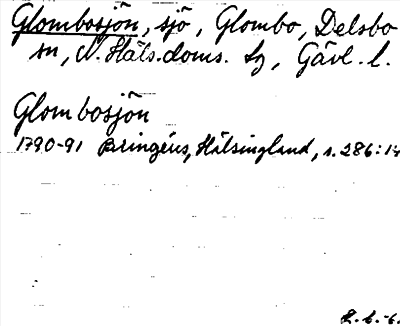 Glombosjön, sjö, Glombo, Delsbo
sn, N. Häls. doms. sg, Gävl. l.
Glombosjön
1790-91 Bringéus, Hälsingland, s. 286:14